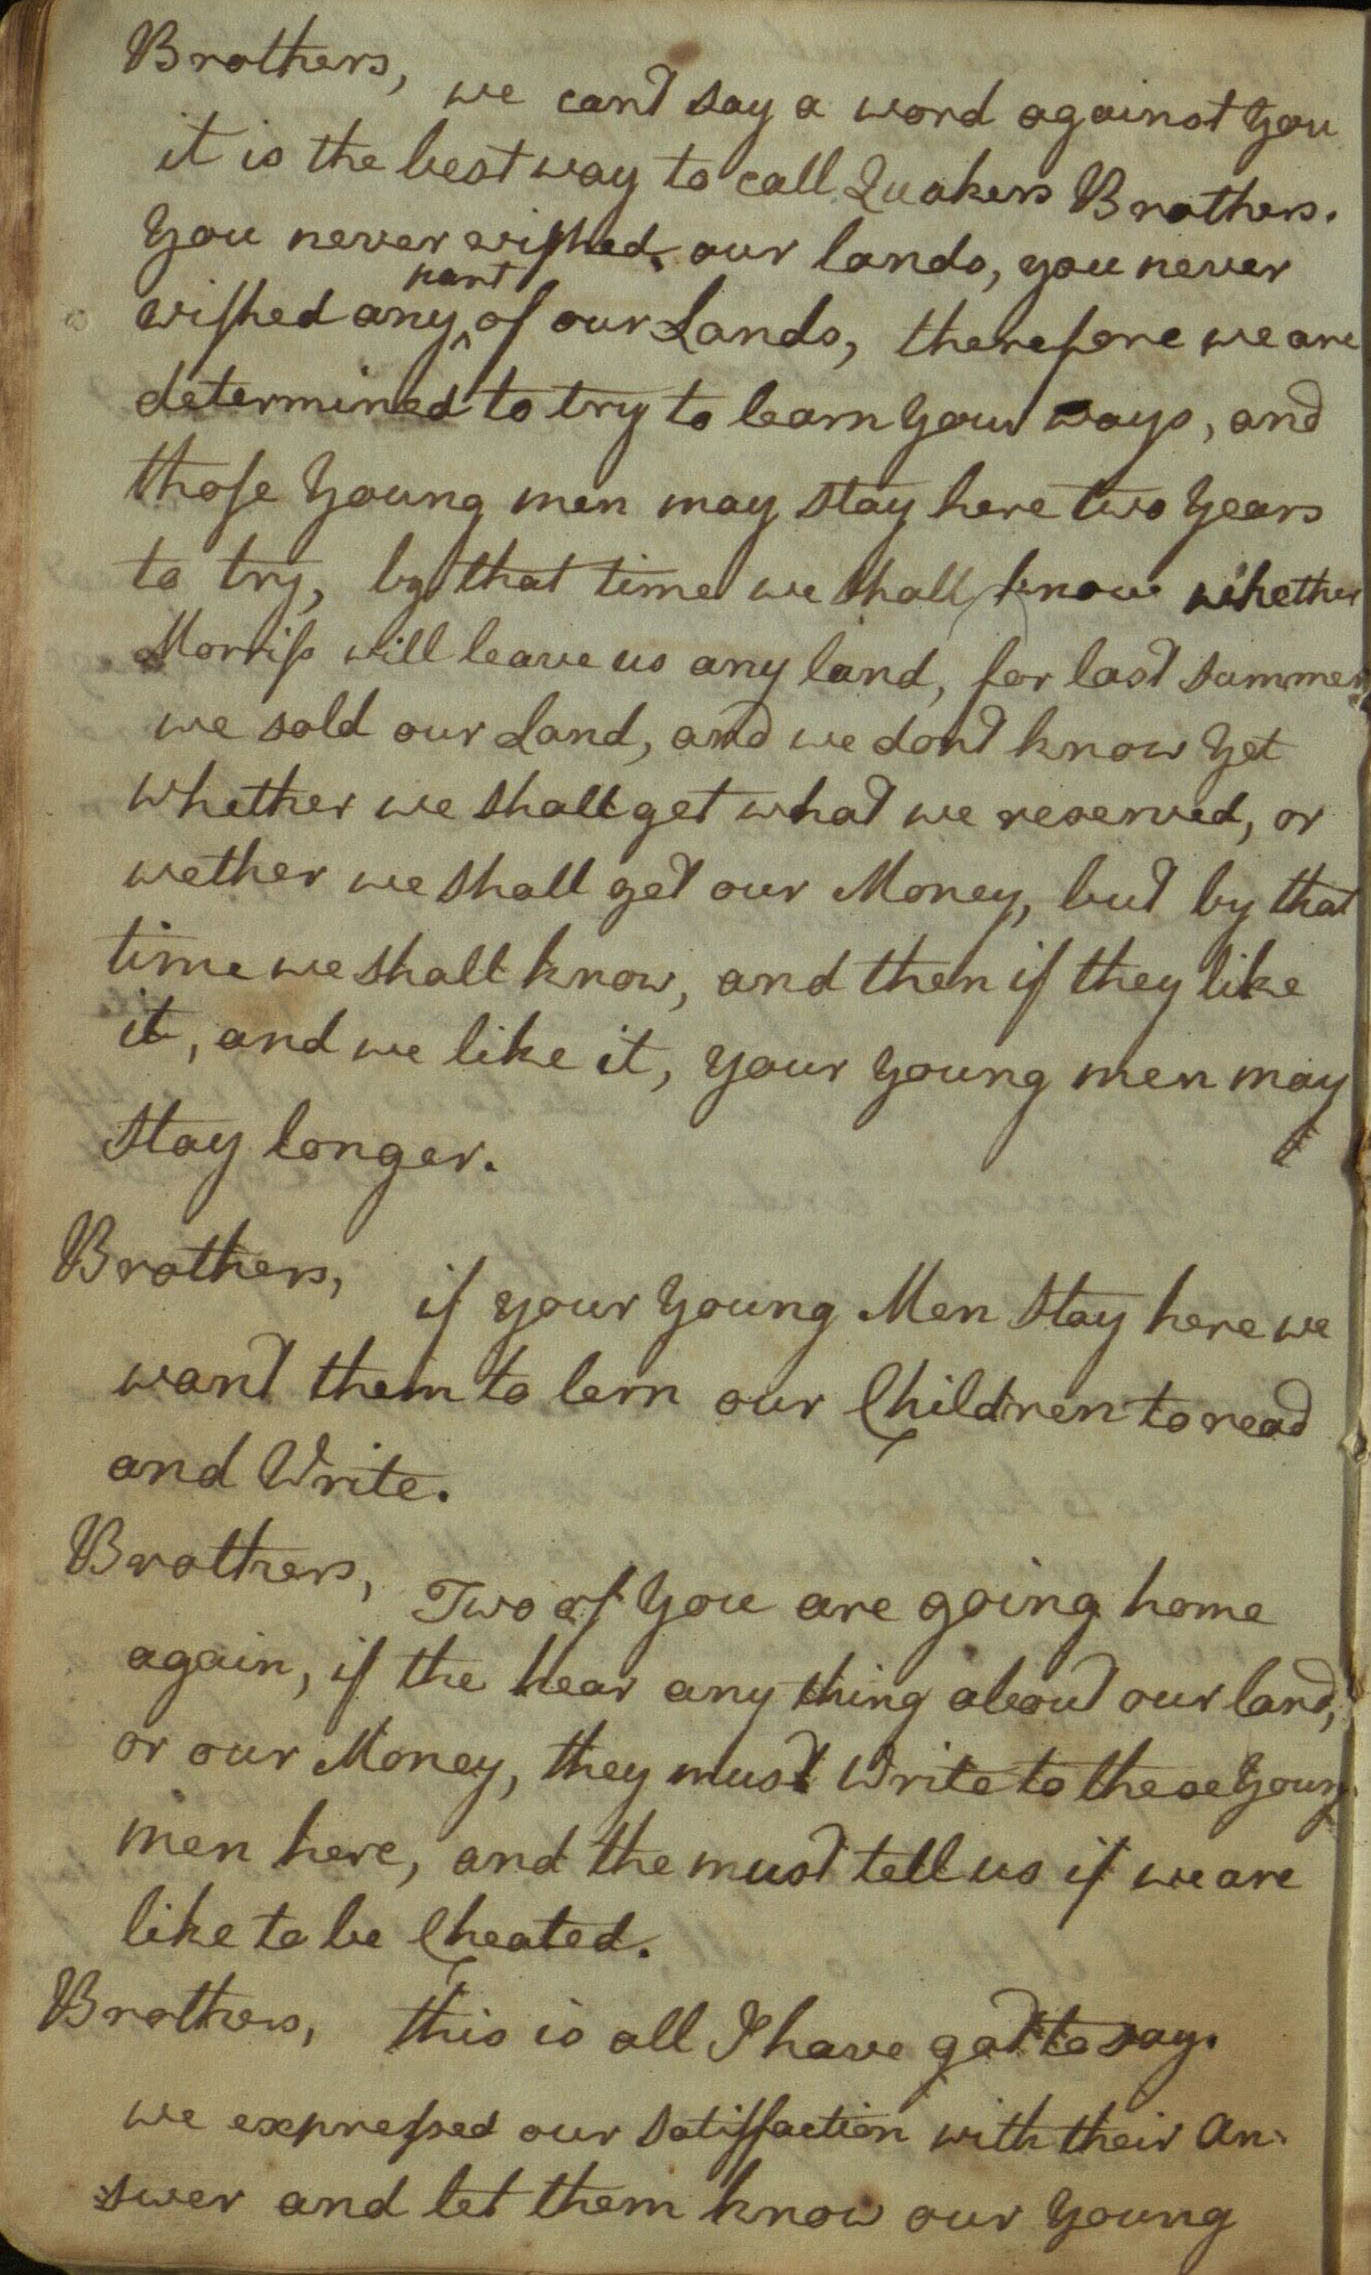 Brothers, we cant say a word against you
it is the best way to call Quakers Brothers.
You never wished our lands, you never
wished any part of our Lands, therefore we are
determined to try to learn your ways, and
those Young men may stay here two Years
to try, by that time we shall know whether
Morriss will leave us any land, for last summer
we sold our Land, and we dont know Yet
whether we shall get what we reserved, or
wether we shall get our Money, but by that
time we shall know, and then if they like
it, and we like it, your Young men may
Stay longer.
Brothers, if your Young Men Stay here we
want them to lern our Children to read
and Write.
Brothers, Two of You are going home
again, if the hear any thing about our land,
or our Money, they must Write to these Young
men here, and the must tell us if we are
like to be Cheated.
Brothers, this is all I have got to say.
we expressed our Satisfaction with their An-
swer and let them know our Young